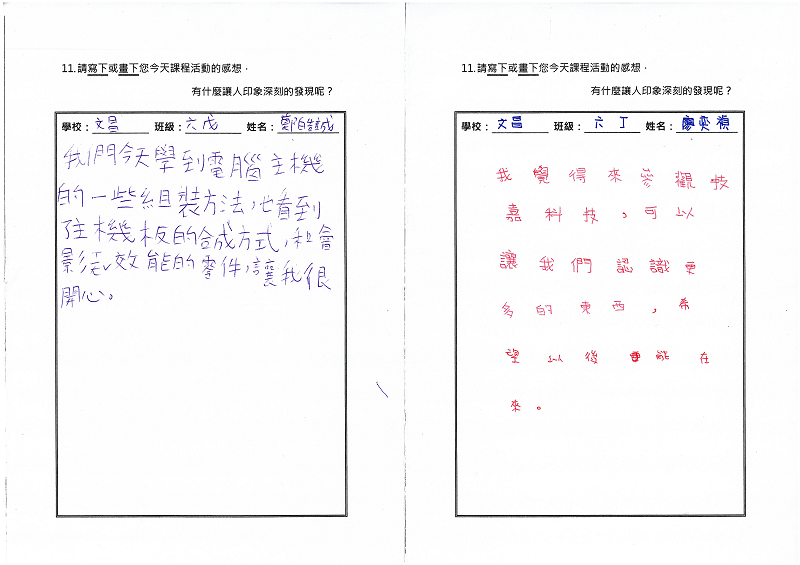 11.請寫下或畫下您今天課程活動的感想，
有什麼讓人印象深刻的發現呢？
學校：文昌 班級：六戊 姓名：鄭皓誠
我們今天學到電腦主機
的一些組裝方法，也看到
主機板的合成方式，和會
影響效能的零件，讓我很
開心。
11.請寫下或畫下您今天課程活動的感想，
有什麼讓人印象深刻的發現呢？
學校：文昌 班級：六丁 姓名：廖奕禎
我覺得來參觀技
嘉科技，可以
讓我們認識更
多的東西，希
望以後能在
來。